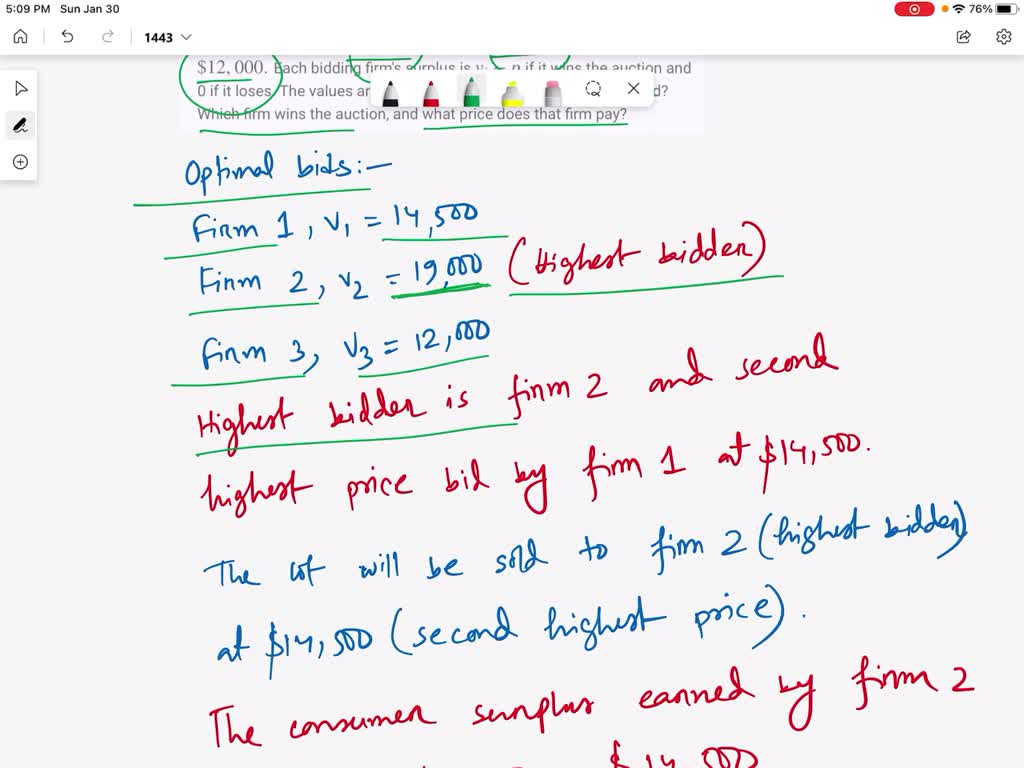 5:09 PM Sun Jan 30
76%
1443
$12,000. Each bidding firm's surplus is if it wins the auction and
0 if it loses. The values ar d?
Which firm wins the auction, and what price does that firm pay?
Optimal bids:-
Firm 1, V1 = 14,500
Firm 2, V2 = 19,000 (Highest bidder)
Firm 3, V3 = 12,000
Highest bidder is firm 2 and second
highest price bid by firm 1 at $14,500.
The lot will be sold to firm 2 (highest bidder)
at $14,500 (second highest price).
The consumer surplus earned by firm 2
$14,500